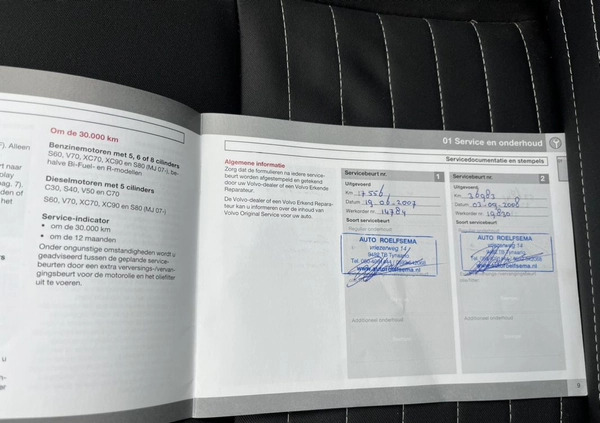 ). Alleen
rt naar
play
ag. 7).
den of
het
s
u
n-
er
Om de 30.000 km
Benzinemotoren met 5, 6 of 8 cilinders
S60, V70, XC70, XC90 en S80 (MJ 07-), be-
halve Bi-Fuel- en R-modellen
Dieselmotoren met 5 cilinders
C30, S40, V50 en C70
S60, V70, XC70, XC90 en S80 (MJ 07-)
Service-indicator
• om de 30.000 km
• om de 12 maanden
Onder ongunstige omstandigheden wordt u
geadviseerd tussen de geplande service-
beurten door een extra verversings-/vervan-
gingsbeurt voor de motorolie en het oliefilter
uit te voeren.
01 Service en onderhoud
Servicedocumentatie en stempels
Algemene informatie
Zorg dat de formulieren na iedere service-
beurt worden afgestempeld en getekend
door uw Volvo-dealer of een Volvo Erkende
Reparateur.
De Volvo-dealer of een Volvo Erkend Repara-
teur kan u informeren over de inhoud van
Volvo Original Service voor uw auto.
Servicebeurt nr. 1
Uitgevoerd
Km 17556
Datum 19-06-2007
Werkorder nr. 14784
Soort servicebeurt
Regulier onderhoud
AUTO ROELFSEMA
vriezerweg 14
9482 TB Tynaarlo
www.autoroelfsema.nl
Additioneel onderhoud
Servicebeurt nr. 2
Uitgevoerd
Km 30983
Datum 02-09-2008
Werkorder nr. 19830
Soort servicebeurt
AUTO ROELFSEMA
vriezerweg 14
9482 TB Tynaarlo
www.autoroelfsema.nl
Additioneel onderhoud
9